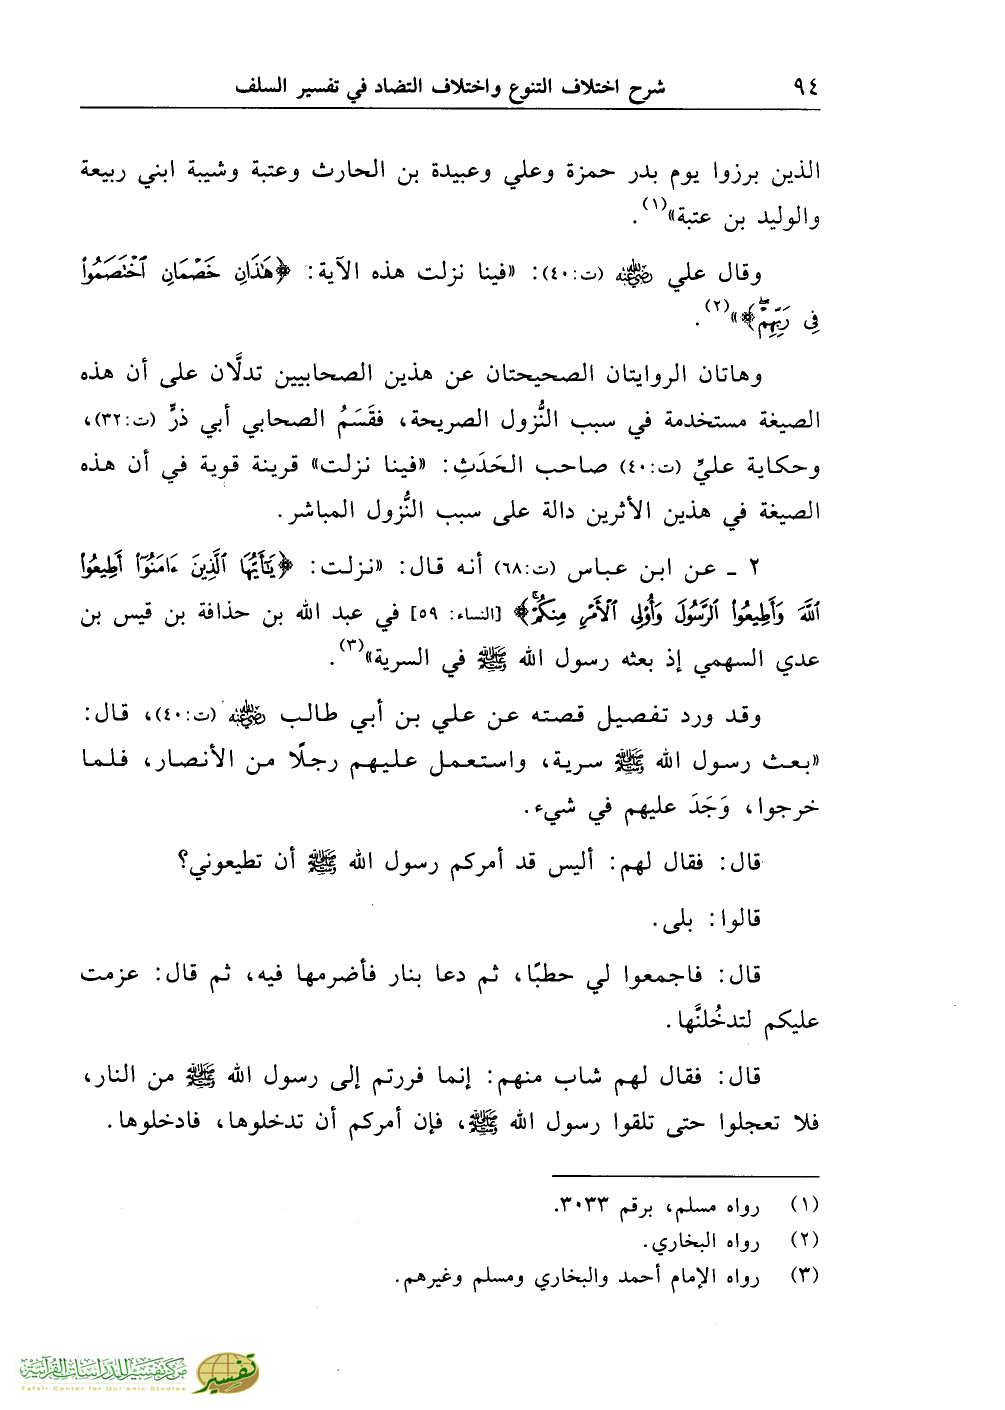 شرح اختلاف التنوع واختلاف التضاد في تفسير السلف ٩٤
الذين برزوا يوم بدر حمزة وعلي وعبيدة بن الحارث وعتبة وشيبة ابني ربيعة
والوليد بن عتبة»(١).
وقال علي رضي الله عنه (ت:٤٠): «فينا نزلت هذه الآية: ﴿هَٰذَانِ خَصْمَانِ ٱخْتَصَمُوا۟
فِى رَبِّهِمْۖ﴾»(٢).
وهاتان الروايتان الصحيحتان عن هذين الصحابيين تدلَّان على أن هذه
الصيغة مستخدمة في سبب النُّزول الصريحة، فقَسَمُ الصحابي أبي ذرٍّ (ت:٣٢)،
وحكاية عليٍّ (ت:٤٠) صاحب الحَدَثِ: «فينا نزلت» قرينة قوية في أن هذه
الصيغة في هذين الأثرين دالة على سبب النُّزول المباشر.
٢ ـ عن ابن عباس (ت:٦٨) أنه قال: «نزلت: ﴿يَٰٓأَيُّهَا ٱلَّذِينَ ءَامَنُوٓا۟ أَطِيعُوا۟
ٱللَّهَ وَأَطِيعُوا۟ ٱلرَّسُولَ وَأُو۟لِى ٱلْأَمْرِ مِنكُمْۖ﴾ [النساء: ٥٩] في عبد الله بن حذافة بن قيس بن
عدي السهمي إذ بعثه رسول الله ﷺ في السرية»(٣).
وقد ورد تفصيل قصته عن علي بن أبي طالب رضي الله عنه (ت:٤٠)، قال:
«بعث رسول الله ﷺ سرية، واستعمل عليهم رجلًا من الأنصار، فلما
خرجوا، وَجَدَ عليهم في شيء.
قال: فقال لهم: أليس قد أمركم رسول الله ﷺ أن تطيعوني؟
قالوا: بلى.
قال: فاجمعوا لي حطبًا، ثم دعا بنار فأضرمها فيه، ثم قال: عزمت
عليكم لتدخُلنَّها.
قال: فقال لهم شاب منهم: إنما فررتم إلى رسول الله ﷺ من النار،
فلا تعجلوا حتى تلقوا رسول الله ﷺ، فإن أمركم أن تدخلوها، فادخلوها.
(١) رواه مسلم، برقم ٣٠٣٣.
(٢) رواه البخاري.
(٣) رواه الإمام أحمد والبخاري ومسلم وغيرهم.
مركز تفسير للدراسات القرآنية
Tafsir Center for Qur'anic Studies
تفسير